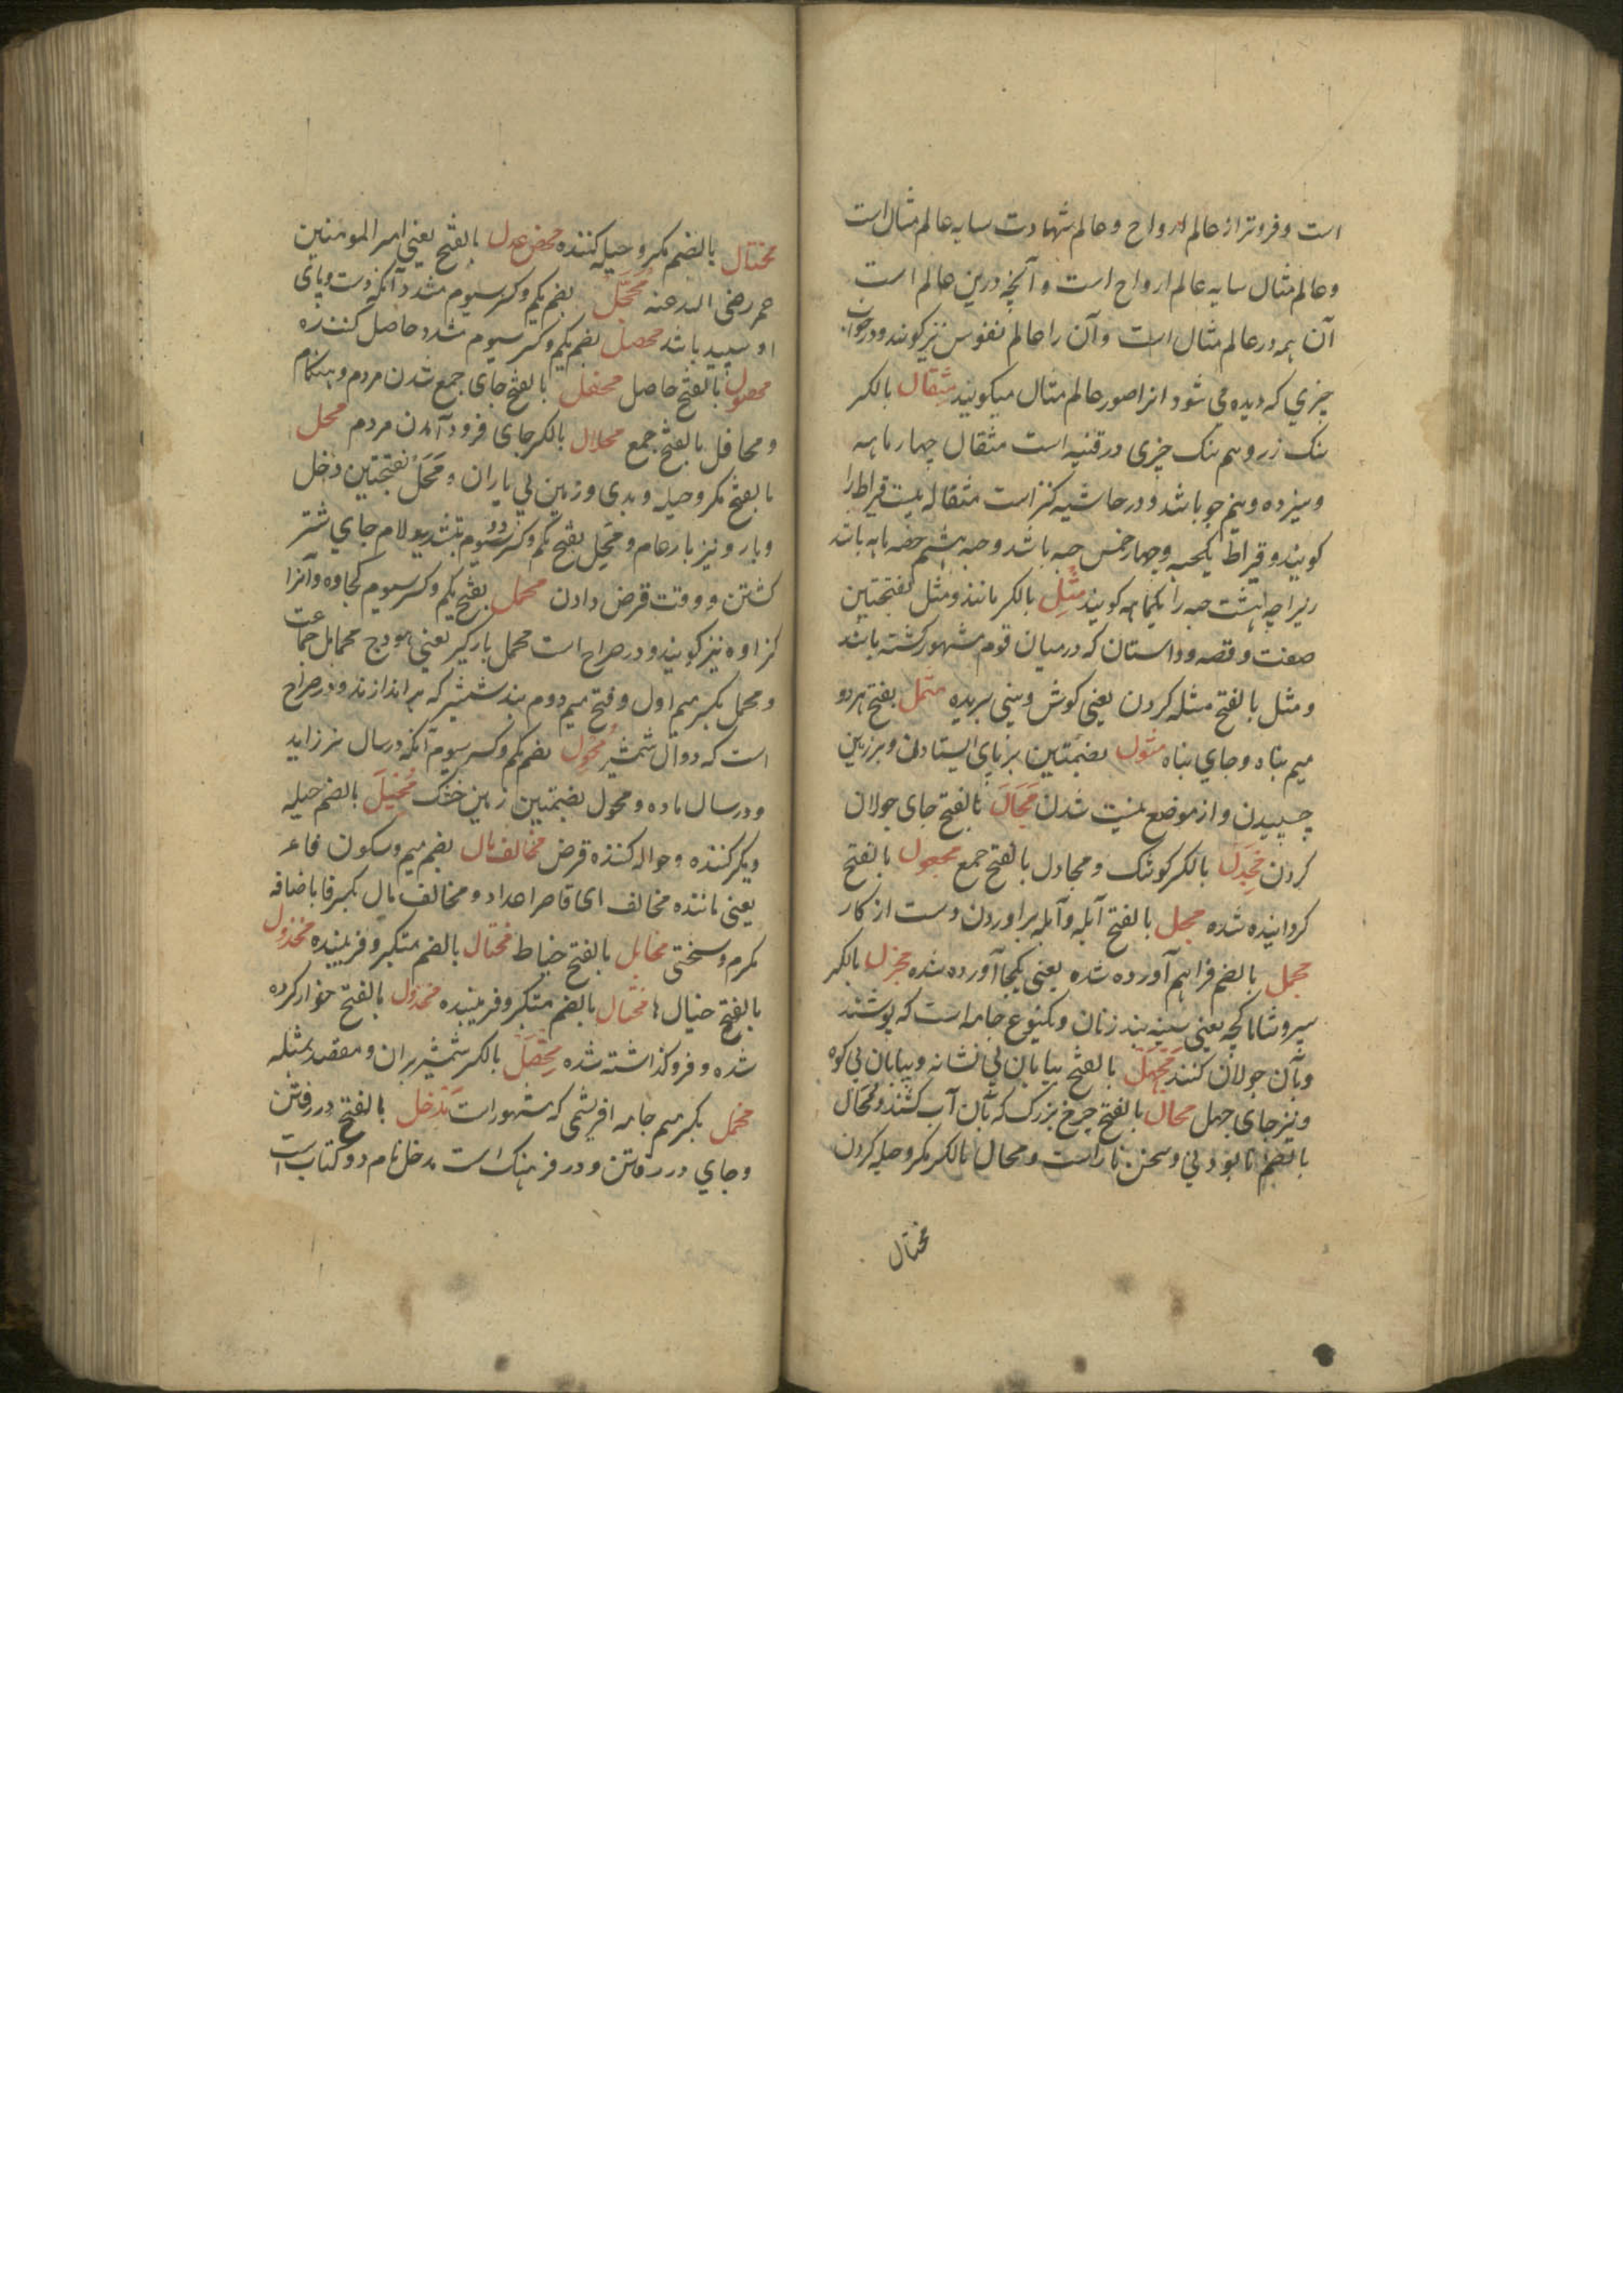 است و فروتر از عالم ارواح و عالم شهادت سایه عالم مثال است
و عالم مثال سایه عالم ارواح است و آنچه درین عالم است
آن همه در عالم مثال است و آن را عالم نفوس نیز کویند و در خواب
چیزي که دیده می شود انرا صور عالم مثال میکویند مثقال بالکسر
سنک زر و هم سنک چیزی در قنیه است مثقال چهار ماهه
و سیزده و نیم جو باشد و در حاشیه کنز است مثقاله بیست قیراط را
کویند و قیراط یکحبه و چهار خمس حبه باشد و حبه هشتم حصه ماهه باشد
زیرا چه هشت حبه را یکماهه کویند مثل بالکسر مانند و مثل بفتحتین
صفت و قصه و داستان که درمیان قوم مشهور کشته باشد
و مثل بالفتح مثله کردن یعنی کوش و بینی بریده مثمل بفتح هر دو
میم پناه و جاي پناه مثول بضمتین برپای ایستادن و بر زمین
چسپیدن و از موضع نیست شدن مجال بالفتح جای جولان
کردن مجدل بالکسر کوشک و مجادل بالفتح جمع مجعول بالفتح
کردانیده شده مجل بالفتح آبله و آبله براوردن دست از کار
مجمل بالضم فراهم آورده شده یعنی یکجا آورده شده مجزل بالکسر
سپر و شاماکچه یعنی سینه بند زنان و یکنوع جامه است که پوشند
و بآن جولان کنند مجهل بالفتح بیابان بی نشانه و بیابان بی کوه
و نیز جای جهل محال بالفتح چرخ بزرک که بآن آب کشند و محال
بالضم نابودنی و سخن ناراست و محال بالکسر مکر و حیله کردن
مختال
مختال بالضم مکر و حیله کننده محض عدل بالفتح یعنی امیر المومنین
عمر رضی الله عنه محجل بضم یکم و کسر سیوم مشدد آنکه دست و پای
او سپید باشد محصل بضم یکم و کسر سیوم مشدد حاصل کننده
محصول بالفتح حاصل محفل بالفتح جای جمع شدن مردم و هنکام
و محافل بالفتح جمع محلال بالکسر جای فرود آمدن مردم محل
بالفتح مکر و حیله و بدی و زمین بی باران و محل بفتحتین دخل
و بار و نیز بار عام و محل بفتح یکم و کسر دوم بتشدید لام جاي شتر
کشتن و وقت قرض دادن محمل بفتح یکم و کسر سیوم کجاوه و آنرا
کزاوه نیز کویند و در صراح است محمل بارکیر یعنی هودج محامل جماعت
و محمل بکسر میم اول و فتح میم دوم بند شمشیر که براندازند و در صراح
است که دوال شمشیر محول بضم یکم و کسر سیوم آنکه در سال نر زاید
و در سال ماده و محول بضمتین زمین خشک محیل بالضم حیله
ویکر کننده و حواله کننده قرض مخالف مال بضم میم و سکون فاعر
یعنی ماننده مخالف ای قاصر اعداد و مخالف مال بکسر فا با ضافه
مکرم و سختی مخایل بالفتح خیاط مختال بالضم متکبر و فریبنده مخذول
بالفتح خیال ها مختال بالضم متکبر و فریبنده مخذول بالفتح خوار کرده
شده و فرو کذاشته شده مخصل بالکسر شمشیر بران و مقصد بمثله
مخمل بکسر میم جامه ابریشمی که مشهور است مدخل بالفتح در رفتن
و جاي در رفتن و در فرهنک است مدخل نام دو کتاب است